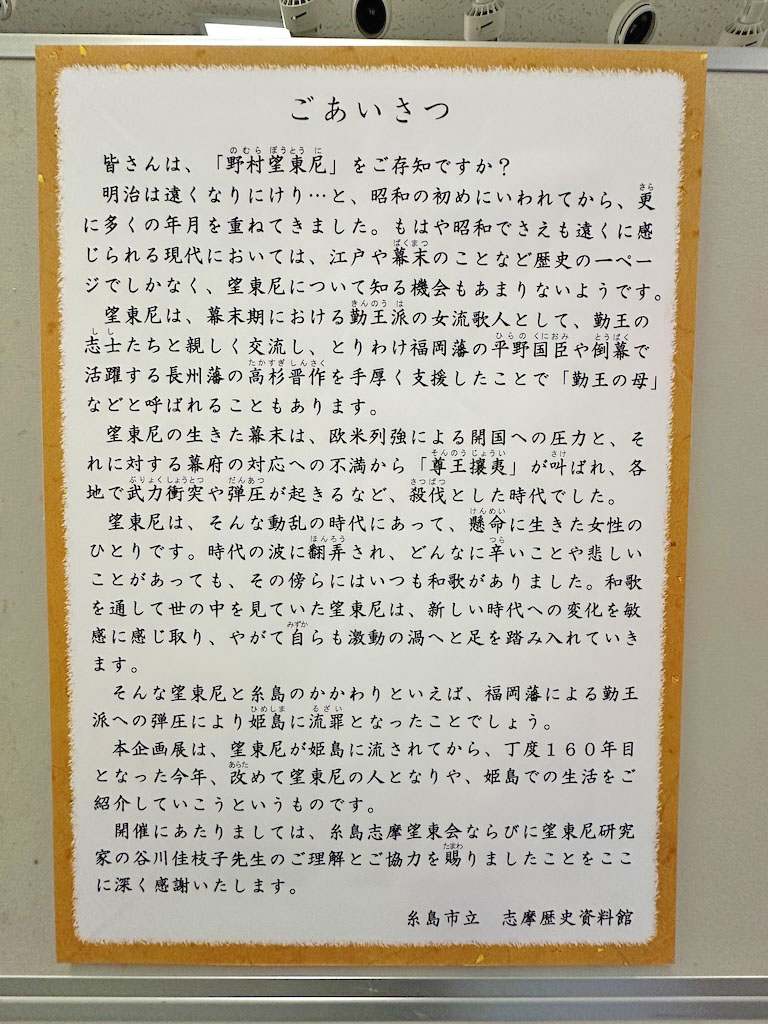 ごあいさつ
皆さんは、「野村望東尼」をご存知ですか？
明治は遠くなりにけり…と、昭和の初めにいわれてから、更
に多くの年月を重ねてきました。もはや昭和でさえも遠くに感
じられる現代においては、江戸や幕末のことなど歴史の一ペー
ジでしかなく、望東尼について知る機会もあまりないようです。
望東尼は、幕末期における勤王派の女流歌人として、勤王の
志士たちと親しく交流し、とりわけ福岡藩の平野国臣や倒幕で
活躍する長州藩の高杉晋作を手厚く支援したことで「勤王の母」
などと呼ばれることもあります。
望東尼の生きた幕末は、欧米列強による開国への圧力と、そ
れに対する幕府の対応への不満から「尊王攘夷」が叫ばれ、各
地で武力衝突や弾圧が起きるなど、殺伐とした時代でした。
望東尼は、そんな動乱の時代にあって、懸命に生きた女性の
ひとりです。時代の波に翻弄され、どんなに辛いことや悲しい
ことがあっても、その傍らにはいつも和歌がありました。和歌
を通して世の中を見ていた望東尼は、新しい時代への変化を敏
感に感じ取り、やがて自らも激動の渦へと足を踏み入れていき
ます。
そんな望東尼と糸島のかかわりといえば、福岡藩による勤王
派への弾圧により姫島に流罪となったことでしょう。
本企画展は、望東尼が姫島に流されてから、丁度１６０年目
となった今年、改めて望東尼の人となりや、姫島での生活をご
紹介していこうというものです。
開催にあたりましては、糸島志摩望東会ならびに望東尼研究
家の谷川佳枝子先生のご理解とご協力を賜りましたことをここ
に深く感謝いたします。
糸島市立　志摩歴史資料館